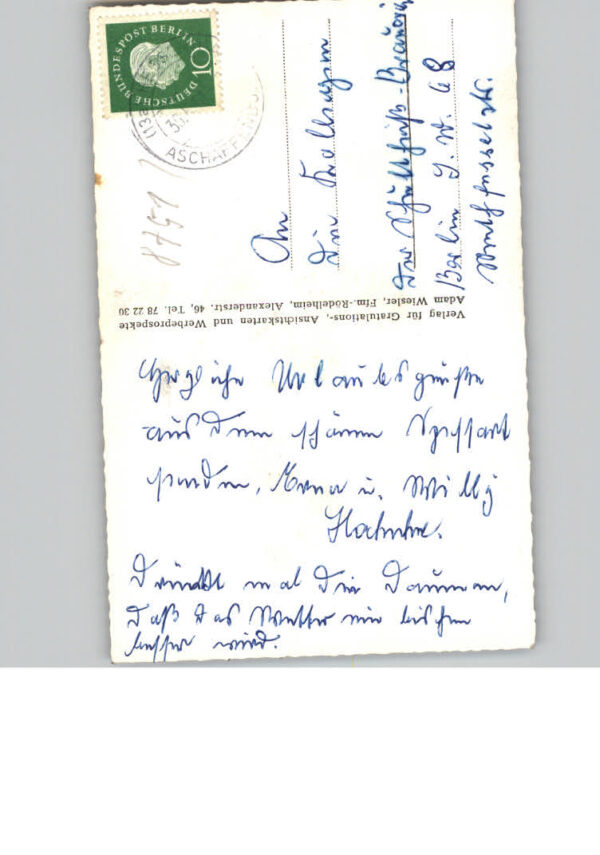 DEUTSCHE BUNDESPOST BERLIN
10
ASCHAFFENBURG
8751
An
die Kollegen
der Schultheiß-Brauerei
Berlin S.W. 68
Verlag für Gratulations-, Ansichtskarten und Werbeprospekte
Adam Wiesler, Ffm.-Rödelheim, Alexanderstr. 46, Tel. 78 22 30
Herzliche Urlaubsgrüße
aus dem schönen Spessart
senden, Erna u. Willy
Drückt mal die Daumen,
daß das Wetter ein bischen
besser wird.